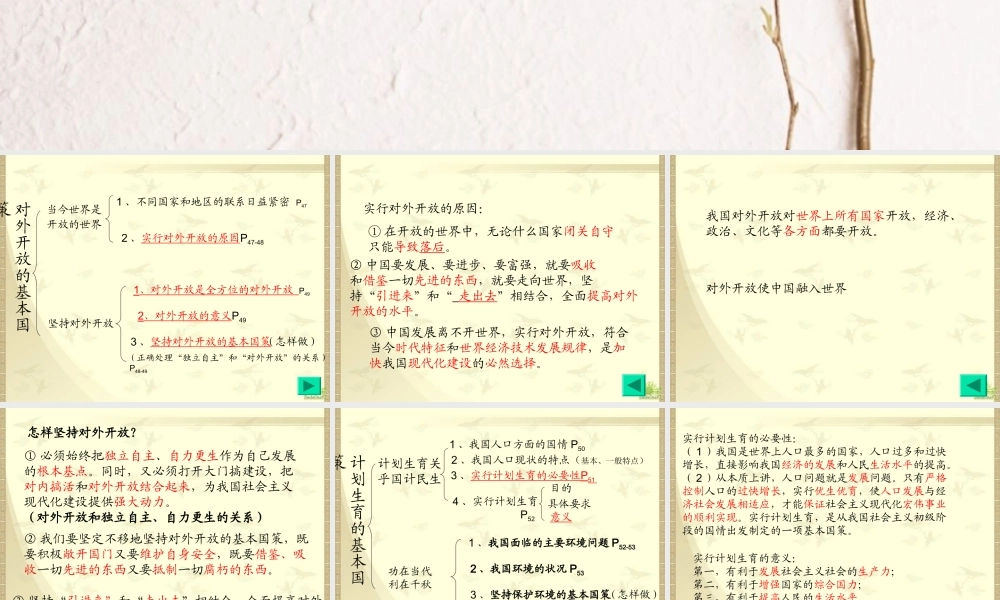 对外开放的基本国
策
当今世界是
开放的世界
1、不同国家和地区的联系日益紧密 P47
2、实行对外开放的原因P47-48
坚持对外开放
1、对外开放是全方位的对外开放 P49
2、对外开放的意义P49
3、坚持对外开放的基本国策(怎样做)
(正确处理“独立自主”和“对外开放”的关系)
P48-49
实行对外开放的原因：
① 在开放的世界中，无论什么国家闭关自守
只能导致落后。
② 中国要发展、要进步、要富强，就要吸收
和借鉴一切先进的东西，就要走向世界，坚
持“引进来”和“ 走出去”相结合，全面提高对外
开放的水平。
③ 中国发展离不开世界，实行对外开放，符合
当今时代特征和世界经济技术发展规律，是加
快我国现代化建设的必然选择。
我国对外开放对世界上所有国家开放，经济、
政治、文化等各方面都要开放。
对外开放使中国融入世界
怎样坚持对外开放？
① 必须始终把独立自主、自力更生作为自己发展
的根本基点。同时，又必须打开大门搞建设，把
对内搞活和对外开放结合起来，为我国社会主义
现代化建设提供强大动力。
(对外开放和独立自主、自力更生的关系)
② 我们要坚定不移地坚持对外开放的基本国策，既
要积极敞开国门又要维护自身安全，既要借鉴、吸
收一切先进的东西又要抵制一切腐朽的东西。
计划生育的基本国
策
计划生育关
乎国计民生
1、我国人口方面的国情 P50
2、我国人口现状的特点（基本、一般特点）
3、实行计划生育的必要性P51
4、实行计划生育
P52
目的
具体要求
意义
功在当代
利在千秋
1、我国面临的主要环境问题 P52-53
2、我国环境的状况 P53
3、坚持保护环境的基本国策(怎样做)
实行计划生育的必要性：
（1）我国是世界上人口最多的国家，人口过多和过快
增长，直接影响我国经济的发展和人民生活水平的提高。
（2）从本质上讲，人口问题就是发展问题。只有严格
控制人口的过快增长，实行优生优育，使人口发展与经
济社会发展相适应，才能保证社会主义现代化宏伟事业
的顺利实现。实行计划生育，是从我国社会主义初级阶
段的国情出发制定的一项基本国策。
实行计划生育的意义：
第一，有利于发展社会主义社会的生产力；
第二，有利于增强国家的综合国力；
第三，有利于提高人民的生活水平